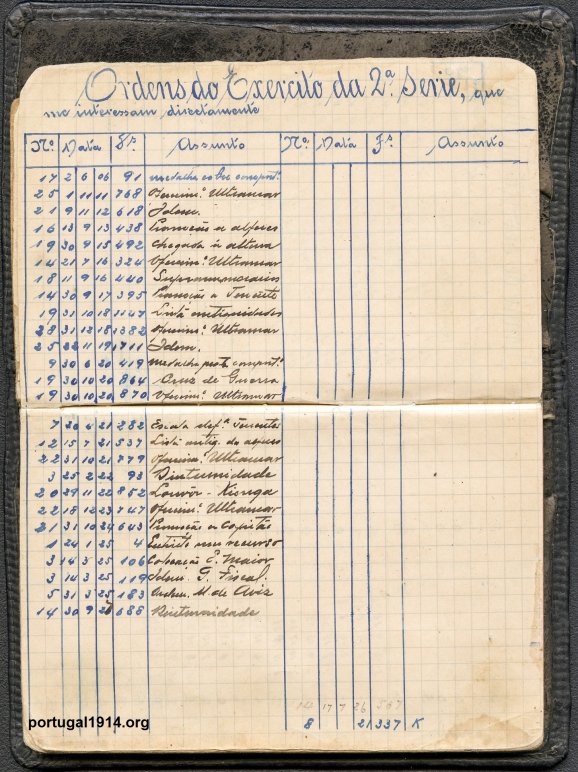 Ordens do Exercito da 2ª Serie, que
me interessam directamente
Nº. Data Fª. Assunto Nº. Data Fª. Assunto
17 2 6 06 91 medalha cobre comport.
25 1 11 11 768 Ultramar
21 9 11 12 618 Idem.
16 13 9 13 438 Promoção a alferes
19 30 9 15 492 Chegada á altura
14 21 7 16 324 Ultramar
18 11 9 16 440 Supranumerario
14 30 9 17 395 Promoção a Tenente
19 31 10 18 1147 Lista antiguidades
28 31 12 18 1382 Ultramar
25 22 11 19 1711 Idem.
9 30 6 20 419 medalha prat. comport.
19 30 10 20 864 Cruz de Guerra
19 30 10 20 870 Ultramar
7 20 4 21 282 Escala def.ª Tenentes
12 15 7 21 537 Lista antig. de
22 31 10 21 779 Ultramar
3 25 2 22 93 Diuturnidade
20 29 11 22 852 Louvor -
22 18 12 23 747 Ultramar
21 31 10 24 643 Promoção a Capitão
1 24 1 25 4 meu recurso
3 14 3 25 106 Colocação E. Maior
3 14 3 25 119 Idem G. Fiscal.
5 31 3 25 183 M de Aviz
14 30 9 688 Diuturnidade
14 17 7 26 567
8 21 337 K
portugal1914.org